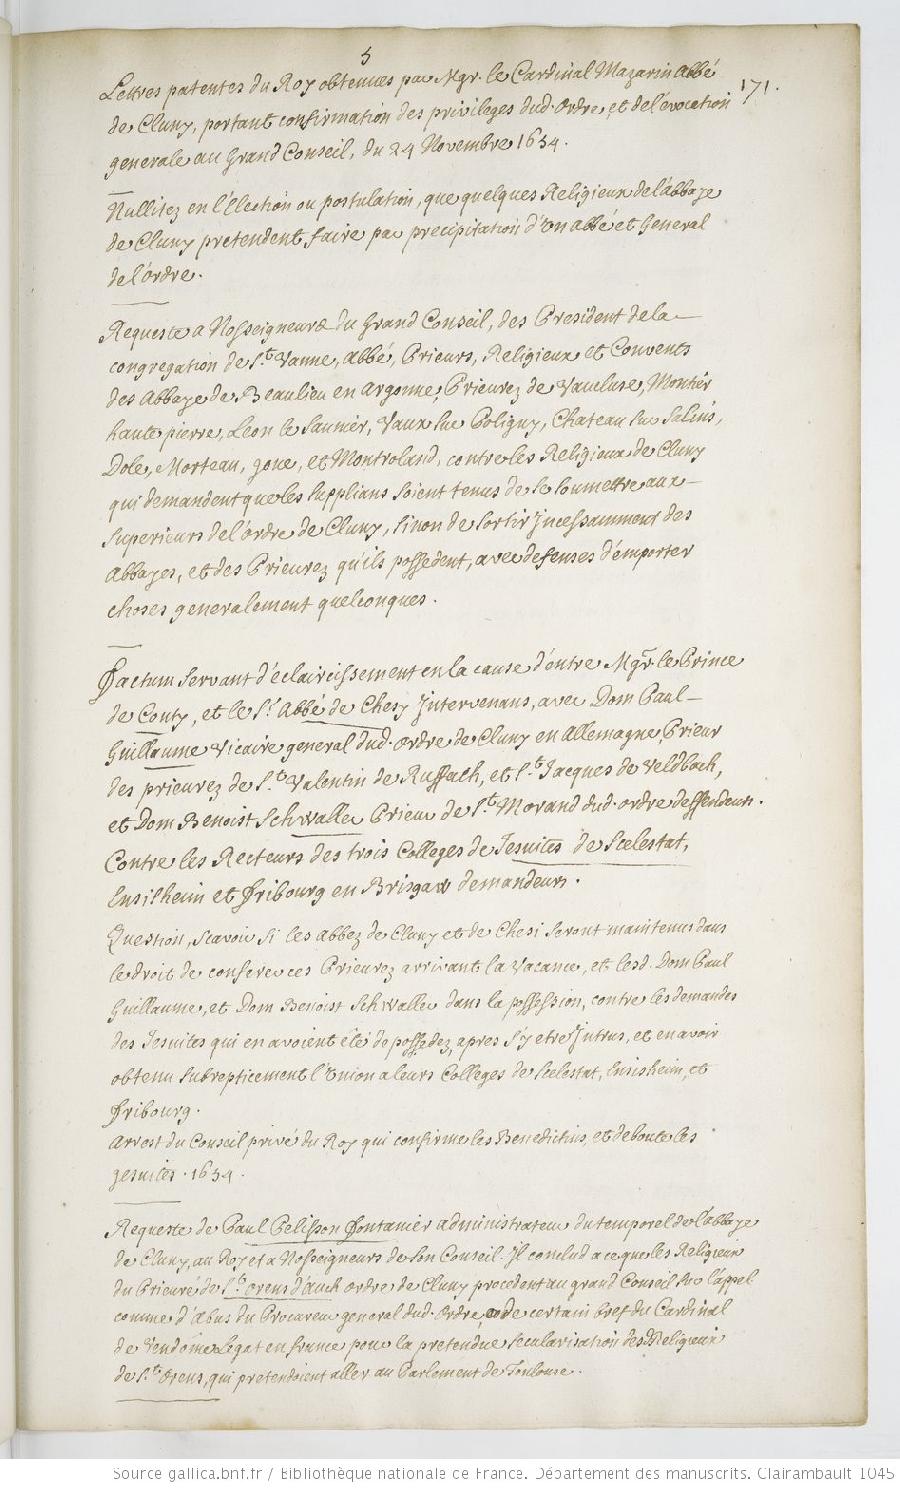 5
171.
Lettres patentes du Roy obtenues par Mgr. le Cardinal Mazarin Abbé
de Cluny, portant confirmation des privileges dud. Ordre, et de l'évocation
generale au Grand Conseil, du 24 Novembre 1654.
Nullitez en l'Élection ou postulation, que quelques Religieux de l'abbaye
de Cluny pretendent faire par precipitation d'un abbé et General
de l'ordre.
Requeste a Nosseigneurs du Grand Conseil, des President de la
congregation de St. Vanne, Abbé, Prieurs, Religieux et Convents
des Abbaye de Beaulieu en Argonne, Prieurez de Vaucluse, Montier
haute pierre, Leon le Saunier, Vaux sur Poligny, Chateau sur Salins,
Dole, Morteau, Joue, et Montroland, contre les Religieux de Cluny
qui demandent que les supplians soient tenus de se soumettre aux
superieurs de l'ordre de Cluny, sinon de sortir Incessamment des
Abbayes, et des Prieurez qu'ils possedent, avec defenses d'emporter
choses generalement quelconques.
Factum servant d'éclaircissement en la cause d'entre Mgr. le Prince
de Conty, et le Sr. Abbé de Chesy Intervenans, avec Dom Paul
Guillaume Vicaire general dud. ordre de Cluny en Allemagne, Prieur
des prieurez de St. Valentin de Ruffach, et St. Jacques de Veldbach,
et Dom Benoist Schwaller Prieur de St. Morand dud. ordre deffendeurs.
Contre les Recteurs des trois Colleges de Jesuites de Scelestat,
Ensisheim et Fribourg en Brisgaw demandeurs.
Question, scavoir si les abbez de Cluny et de Chesi seront maintenus dans
le droit de conferer ces Prieurez arrivant la Vacance, et lesd. Dom Paul
Guillaume, et Dom Benoist Schwaller dans la possession, contre les demandes
des Jesuites qui en avoient été depossedez, apres s'y etre Intrus, et en avoir
obtenu subrepticement l'union a leurs Colleges de Scelestat, Ensisheim, et
Fribourg.
Arrest du Conseil privé du Roy qui confirme les Benedictins, et deboute les
Jesuites. 1654.
Requeste de Paul Pelisson Fontanier administrateur du temporel de l'abbaye
de Cluny, au Roy et a Nosseigneurs de son Conseil. Il conclud a ce que les Religieux
du Prieuré de St. Orens d'auch ordre de Cluny procedent au grand Conseil sur l'appel
comme d'abus du Procureur general dud. Ordre, de certain bref du Cardinal
de Vendome Legat en france pour la pretendue secularisation des Religieux
de St. Orens, qui pretendoient aller au Parlement de Toulouse.
Source gallica.bnf.fr / Bibliothèque nationale de France. Département des manuscrits. Clairambault 1045